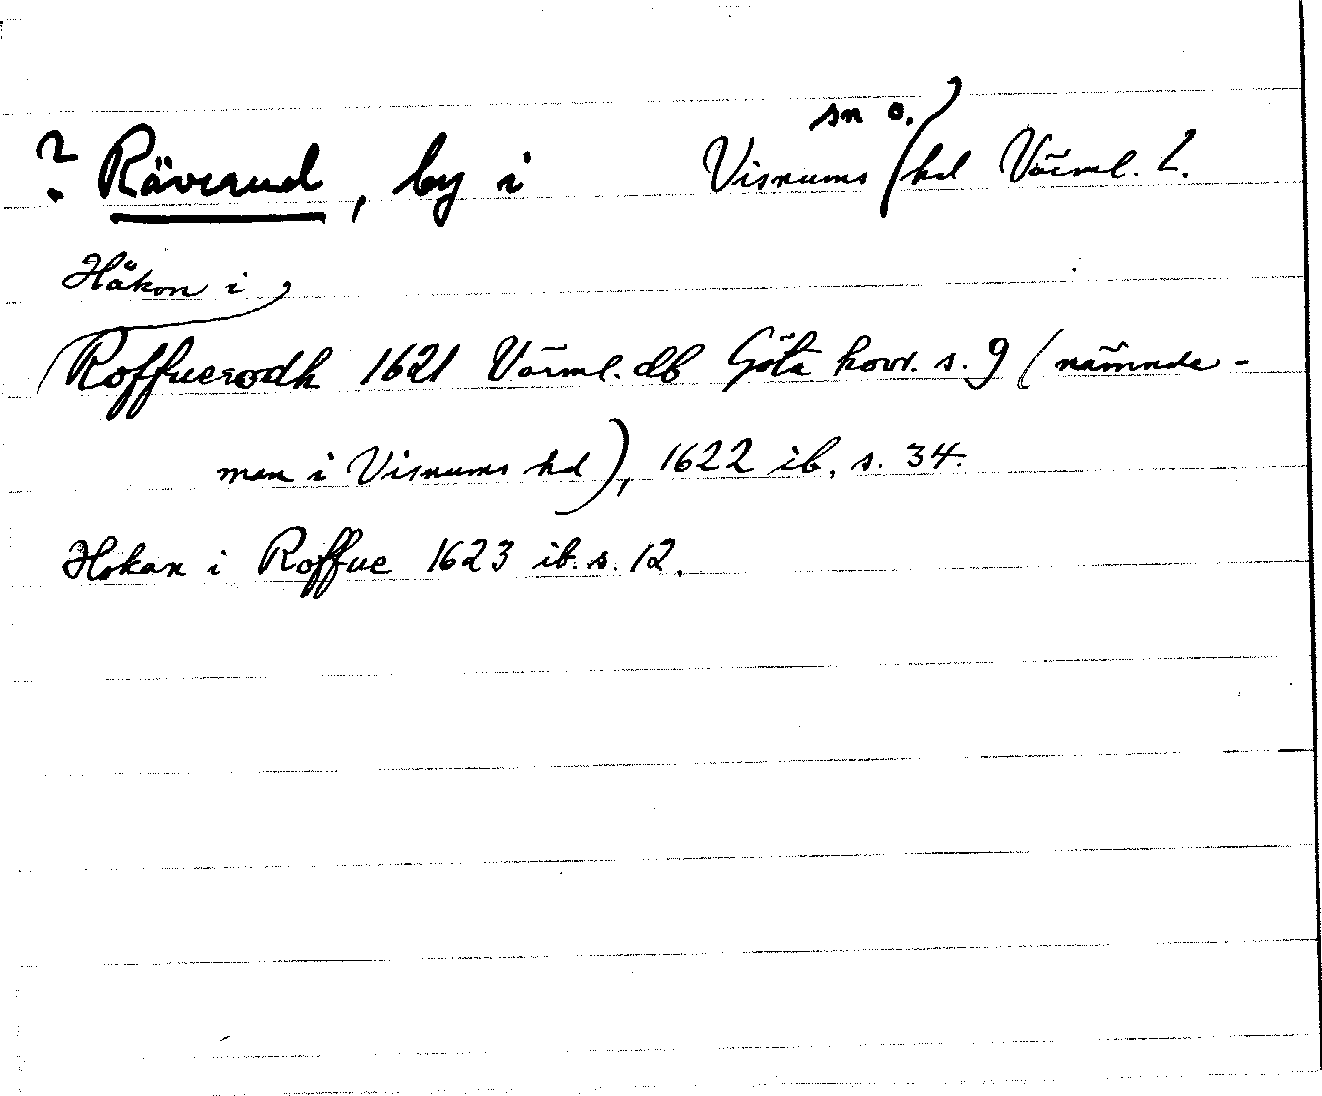 ? Rävrud, by i Visnums sn o. hd Värml. L.
Håkon i
Roffuerodh 1621 Värml. db Göta hovr. s. 9 (nämnde-
man i Visnums hd), 1622 ib. s. 34.
Hokan i Roffue 1623 ib. s. 12.